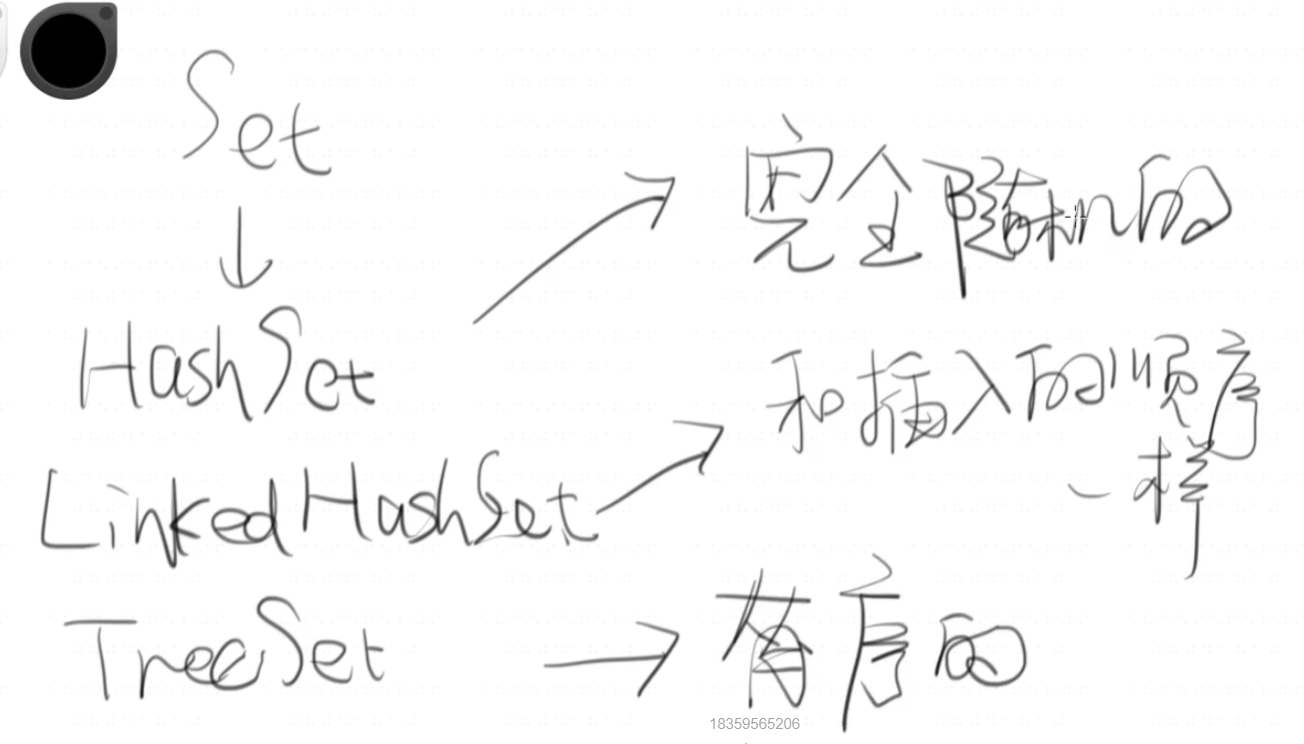 Set
HashSet
完全随机的
LinkedHashSet
和插入的顺序
一样
TreeSet
有序的
18359565206